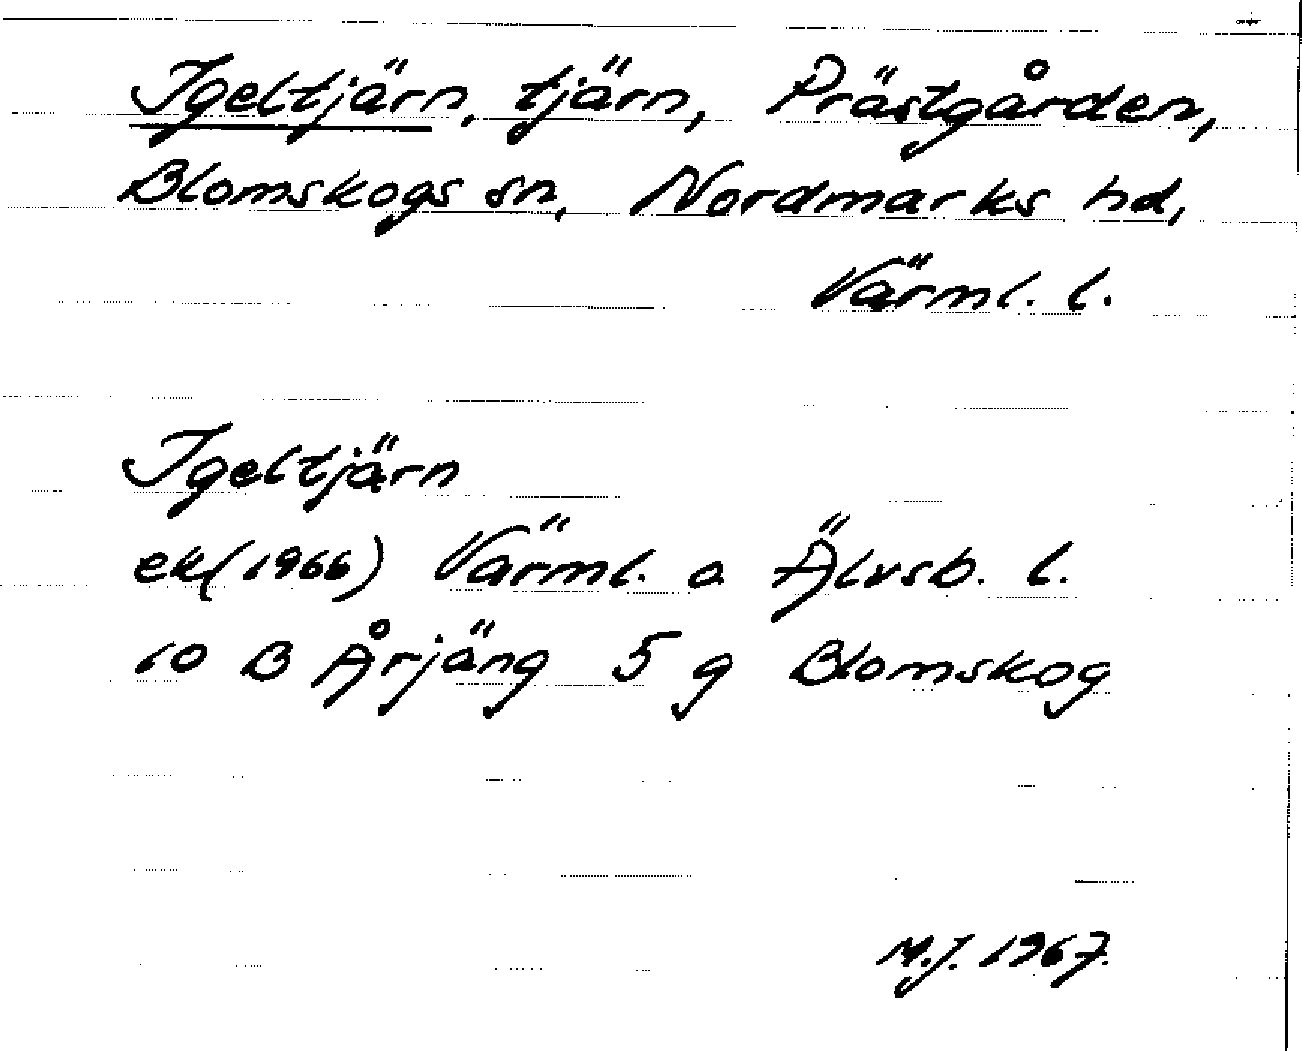 Igeltjärn, tjärn, Prästgården,
Blomskogs sn, Nordmarks hd,
Värml. l.
Igeltjärn
ek (1966) Värml. o Älvsb. l.
10 B Årjäng 5 g Blomskog
M.J. 1967.